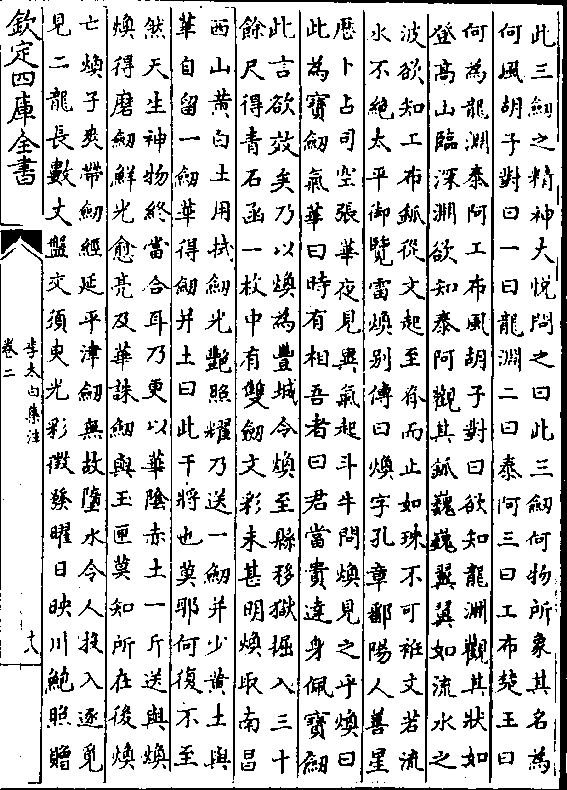 此三劔之精神大悦問之曰此三劔何物所象其名為
何風胡子對曰一曰龍淵二曰泰阿三曰工布楚王曰
何為龍淵泰阿工布風胡子對曰欲知龍淵觀其狀如
登高山臨深淵欲知泰阿觀其鈲巍巍翼翼如流水之
波欲知工布鈲從文起至脊而止如珠不可袵文若流
水不絶太平御覽雷煥别傳曰煥字孔章鄱陽人善星
厯卜占司空張華夜見異氣起斗牛問煥見之乎煥曰
此為寳劔氣華曰時有相吾者曰君當貴達身佩寳劔
此言欲效矣乃以煥為豐城令煥至縣移獄掘入三十
餘尺得青石函一枚中有雙劔文彩未甚明煥取南昌
西山黄白土用拭劔光艷照耀乃送一劔并少黄土與
華自留一劔華得劔并土曰此干將也莫耶何復不至
然天生神物終當合耳乃更以華陰赤土一斤送與煥
煥得磨劔鮮光愈亮及華誅劔與玉匣莫知所在後煥
亡煥子爽帶劔經延平津劔無故墮水令人投入逐覓
見二龍長數丈盤交須臾光彩徴發曜日映川鮑照贈
欽定四庫全書
李太白集注
卷二
十八